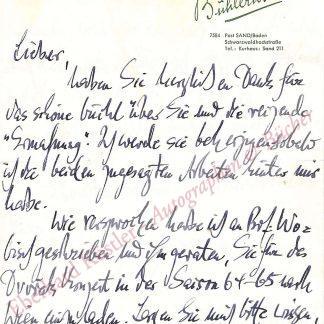 Bühlerhöhe
7584 Post SAND/Baden
Schwarzwaldhochstraße
Tel.: Kurhaus: Sand 211
Lieber,
haben Sie herzlichen Dank für
das schöne Buch über Sie und die reizende
Ich werde sie beherzigen sobald
ich die beiden zugesagten Arbeiten hinter mir
habe.
Wie versprochen habe ich an Prof. Wo-
bisch geschrieben und ihm geraten, Sie für das
konzert in der Saison 64-65 nach
Wien einzuladen. Lassen Sie mich bitte wissen,
Eberhard Köstler Autographen & Bücher